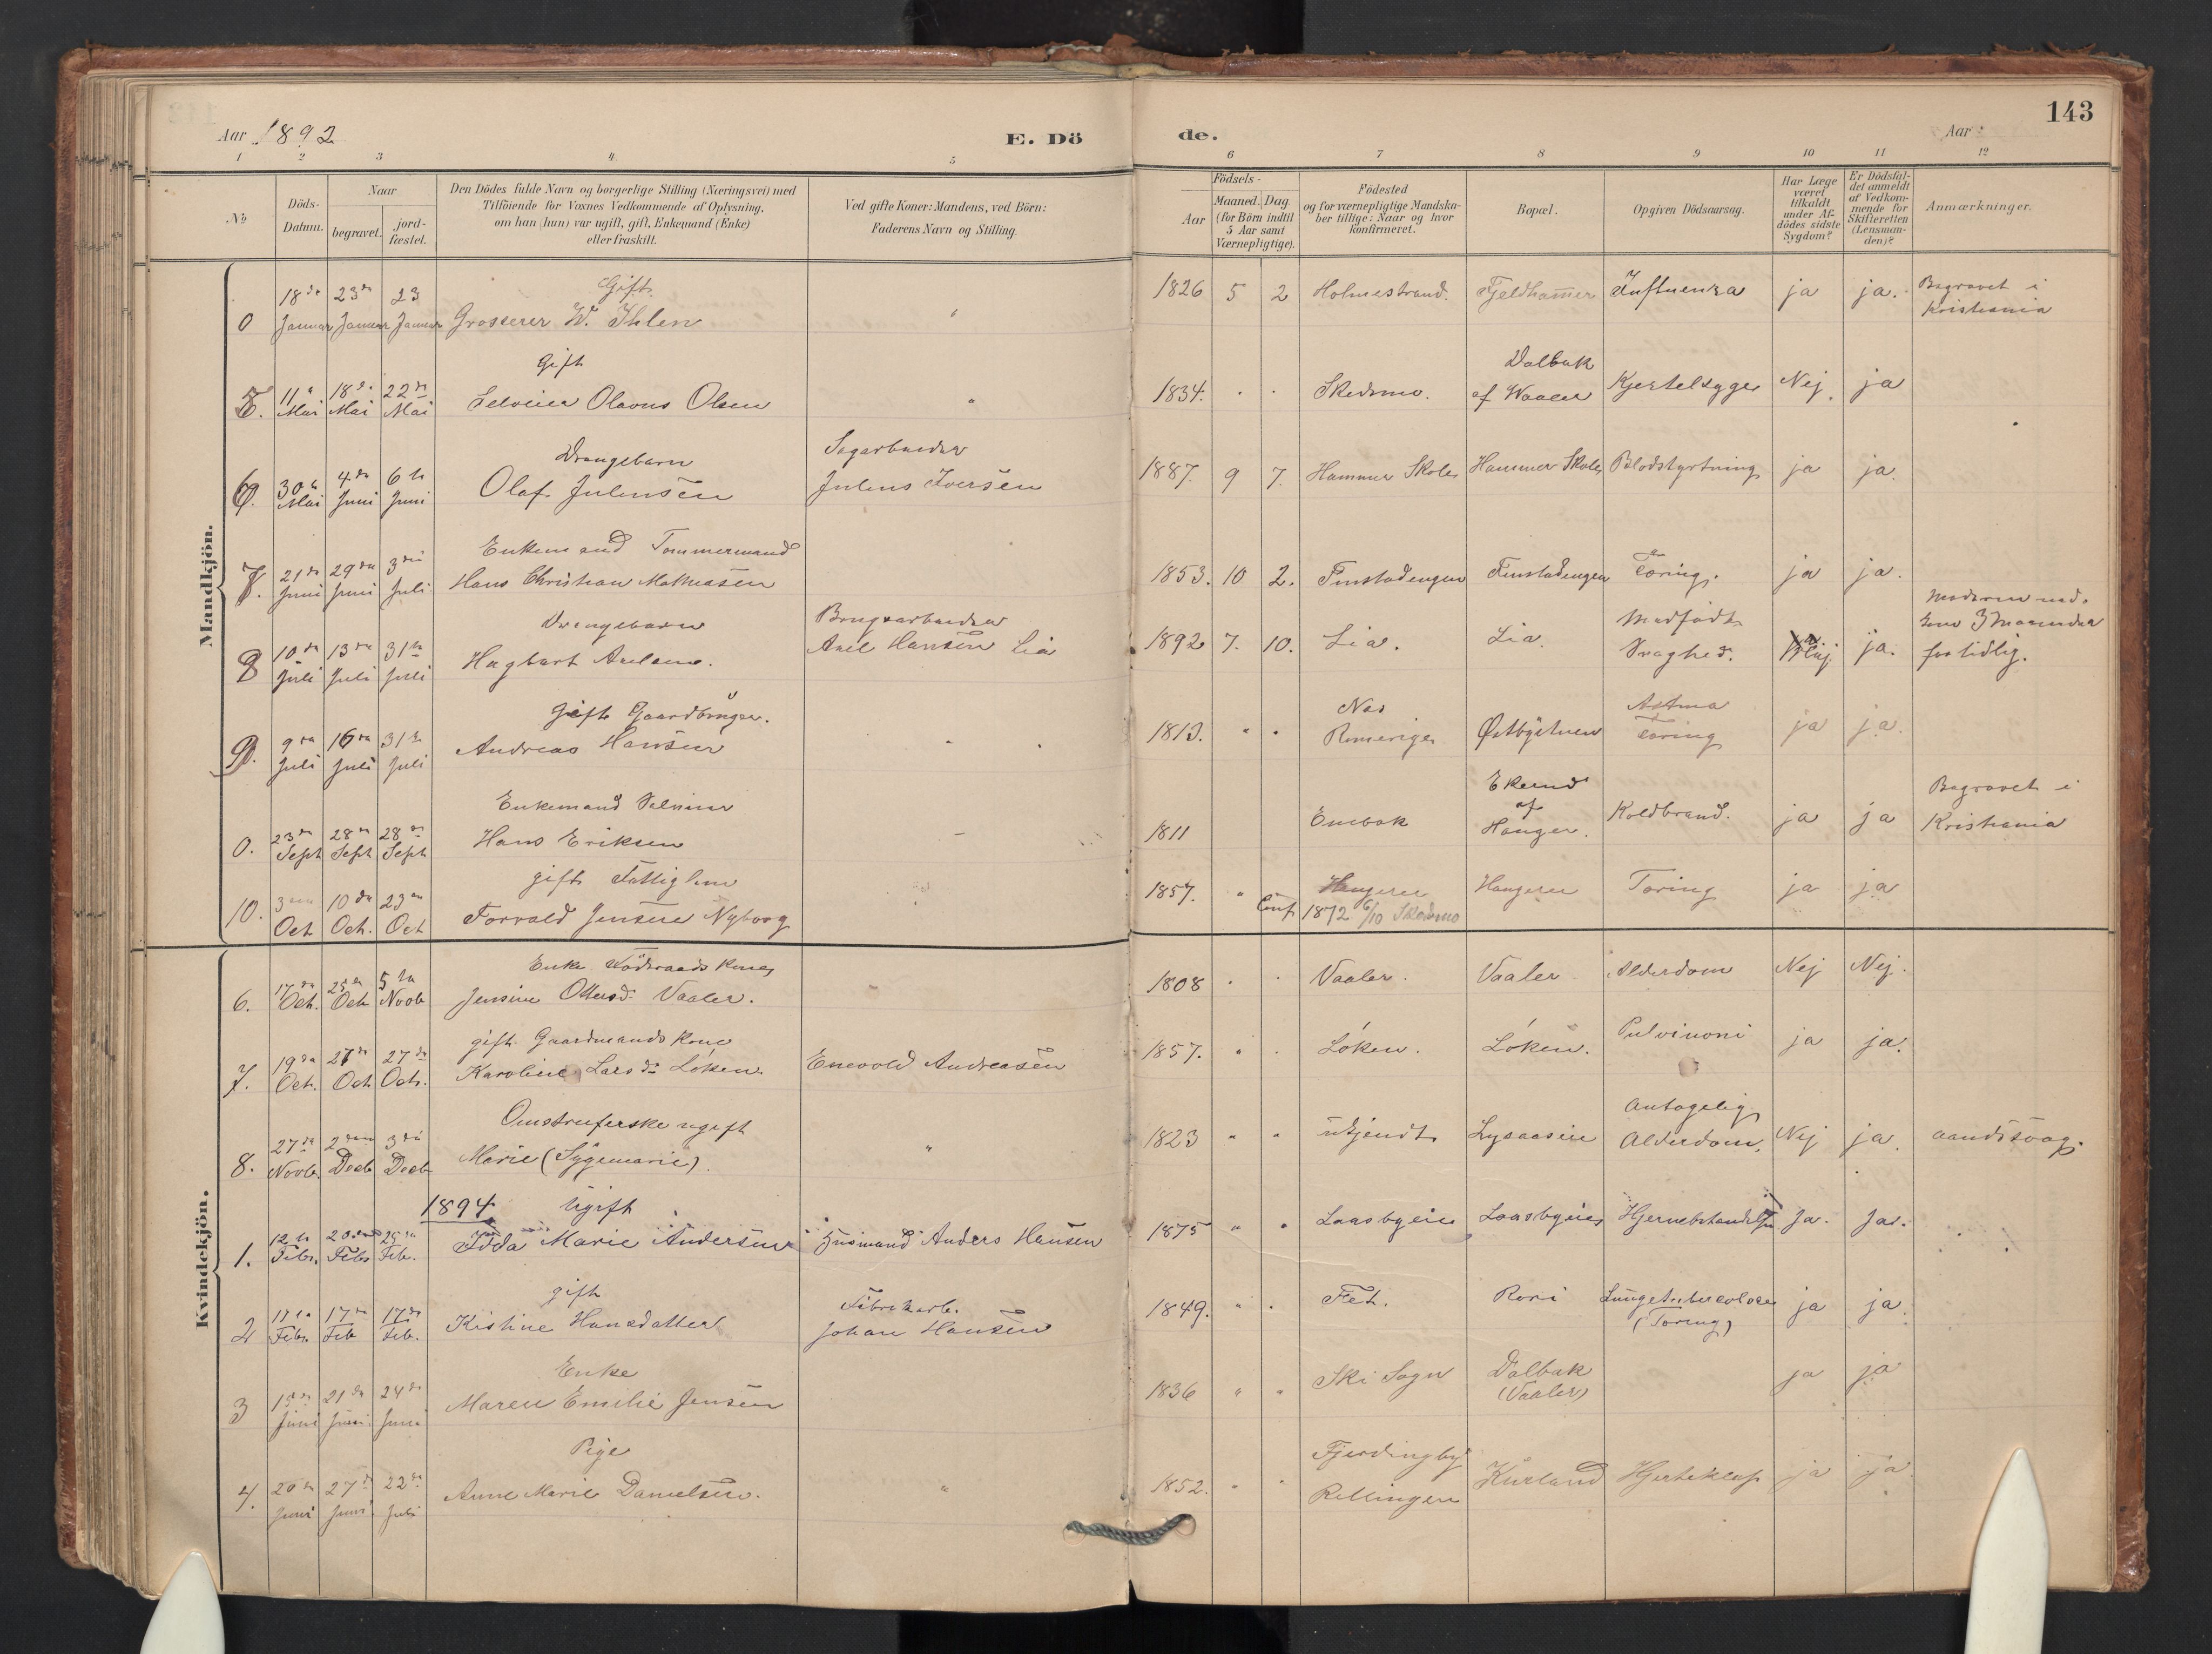 143
Aar 1892 E. Dö de. Aar
1 2 3 4. 5 6 7 8 9 10 11 12
No
Döds-Datum.
Naar begravet. jord-fæstet.
Den Dödes fulde Navn og borgerlige Stilling (Næringsvei) med
Tilföiende for Voxnes Vedkommende af Oplysning,
om han (hun) var ugift, gift, Enkemand (Enke)
eller fraskilt.
Ved gifte Koner: Mandens, ved Börn:
Faderens Navn og Stilling.
Födsels-
Aar Maaned. Dag.
(for Börn indtil
5 Aar samt
Værnepligtige).
Födested
og for værnepligtige Mandska-
ber tillige: Naar og hvor
konfirmeret.
Bopæl.
Opgiven Dödsaarsag.
Har Læge
været
tilkaldt
under Af-
dödes sidste
Sygdom?
Er Dödsfal-
det anmeldt
af Vedkom-
mende for
Skifteretten
(Lensman-
den)?
Anmærkninger.
Mandkjön.
18de 23de 23 Gift 1826 5 2 Holmestrand. Fjeldhamer Influenza ja ja. Begravet i
0 Januar Januar Januar Grosserer W. Ihlen " Kristiania
Gift Dalbak
5. 11te Mai 18de Mai 22de Mai Selveier Olavus Olsen " 1834. Skedsmo. af Waaler Kjertelsyge Nej. ja
Drengebarn Sagarbeider
6. 30te Mai 4de Juni 6te Juni Olaf Juliussen Julius Iversen 1887. 9 7. Hammer Skole Hammer Skole Blodstyrtning ja ja.
Enkemand Tømmermand
7. 21de Juni 29de Juni 3die Juli Hans Christian Mathiasen 1853. 10 2. Finstadengen Finstadengen Tæring. ja ja.
Drengebarn Brugsarbeider Medfødt Moderen ned-
8 10de Juli 13de Juli 31te Juli Hagbart Axelsen. Axel Hansen Lia 1892 7. 10. Lia. Lia. Svaghed. Nej ja. kom 3 Maaneder
for tidlig.
Gift Gaardbruger. Nes Astma
9. 9de Juli 16de Juli 31te Juli Andreas Hansen " 1813. " " Romerige Østbystuen Tæring ja ja.
Enkemand Selveier Ekelund Begravet i
0. 23de Sept 28de Sept 28de Sept Hans Eriksen 1811 Enebak af Hauger. Koldbrand. ja ja Kristiania
gift Fattiglem
10. 3die Oct 10de Oct. 23de Oct Torvald Jensen Nyborg 1857. " Haugeren Haugeren Tæring ja ja
Conf. 1872 6/10 Skedsmo
Kvindekjön.
Enke Föderaads Kone
6. 17de Oct. 25de Oct 5te Novb Jensine Ottersd. Vaaler. 1808 Vaaler. Vaaler Alderdom Nej Nej.
gift Gaardmands Kone
7. 19de Oct. 27de Oct 27de Oct. Karoline Larsd. Løken. Enevold Andreasen 1857. " Løken. Løken. Pulvinoni ja ja.
Omstreiferske ugift Antagelig
8. 27de Novb. 2den Decb 3die Decb Marie (Sygemarie). " 1823 " " ukjendt Lysaasen Alderdom, Nej ja. aandssvag.
1894 Ugift
1. 12te Febr. 20de Febr 25de Feb. Idda Marie Andersen Husmand Anders Hansen 1875 " " Laasbyeie Laasbyeie Ja. Ja.
gift Fabrikarb.
2 11te Febr. 17de Feb 17de Feb. Kistine Hansdatter Johan Hansen 1849. " Fet. Rori Lungetubercolose ja ja.
(Tæring)
Enke Dalbak
3 15de Juni 21de Juni 24de Juni Maren Emilie Jensen 1836 " " Ski Sogn (Vaaler) ja ja
Pige Fjerdingby
4. 20de Juni 27de Juni 22de Juli Anne Marie Danielsen. " 1852. " Rellingen Kurland Hjerteklap ja ja